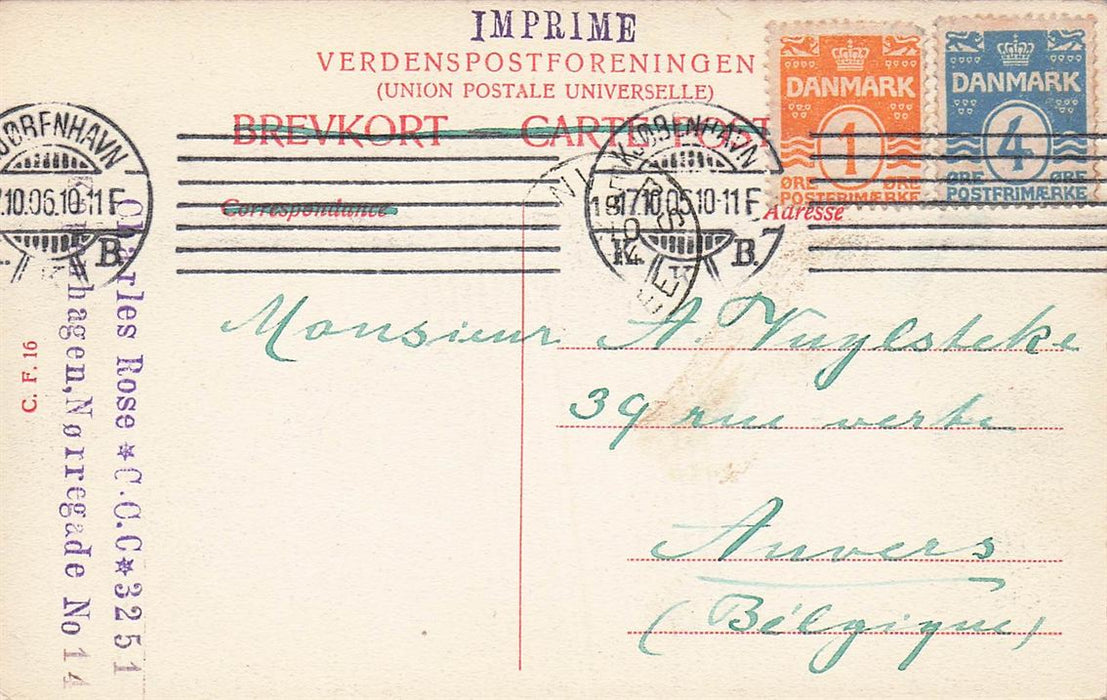 IMPRIME
VERDENSPOSTFORENINGEN
(UNION POSTALE UNIVERSELLE)
BREVKORT — CARTE POST
DANMARK
1
ØRE ØRE
POSTFRIMÆRKE
DANMARK
4
ØRE ØRE
POSTFRIMÆRKE
JØBENHAVN
.10.06.10-11 F
B.
KJØBENHAVN
17.10.06.10-11 F
K. B.
K
Correspondance
Adresse
Monsieur A. Vuylsteke
39 rue verte
Anvers
(Bélgique)
Charles Rose * C.C.C * 3251
hagen, Nørregade No 14
C. F. 16